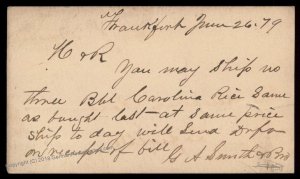 Frankfort June 26-79
H & R
You may ship no
three Bbl Carolina Rice Same
as bought last at Same price
Ship to day will Send Drft
on receipt of bill
G A Smith & Bro